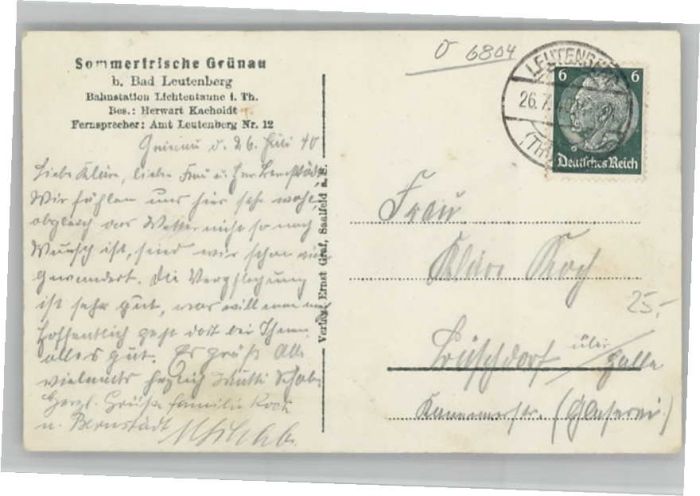 Sommerfrische Grünau
b. Bad Leutenberg
Bahnstation Lichtentanne i. Th.
Bes.: Herwart Kacholdt
Fernsprecher: Amt Leutenberg Nr. 12
Grünau d. 26. Juli 40
Liebe Kläre, liebe Frau u. Herr
Wir fühlen uns hier sehr wohl,
obgleich das Wetter nicht so nach
Wunsch ist, sind wir schon viel
gewandert. Die Verpflegung
ist sehr gut, was will man
Hoffentlich geht dort bei Ihnen
alles gut. Es grüßt Alle
vielmals herzlich
Herzl. Grüße Familie Koch
u. Bernstadt
Verlag: Ernst Graf, Saalfeld a. S.
6804
LEUTENBERG
26.7.
(TH
6 6
Deutsches Reich
Frau
Kläre Koch
25,-
über Halle
(Glaserei)